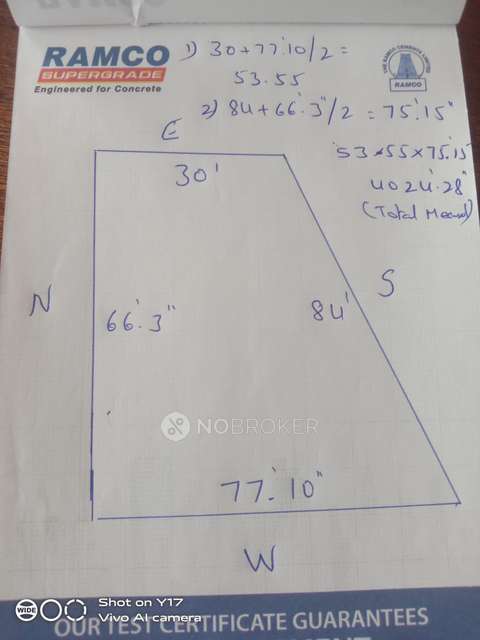 RAMCO
SUPERGRADE
Engineered for Concrete
THE RAMCO CEMENTS LIMITED
RAMCO
1) 30+77'.10/2 =
53.55
2) 84+66'.3"/2 = 75'.15"
53×55×75.15
4024'.28"
(Total Meas)
E
30'
N
66'.3"
84'
S
NOBROKER
77'.10"
W
Shot on Y17
Vivo AI camera
OUR TEST CERTIFICATE GUARANTEES